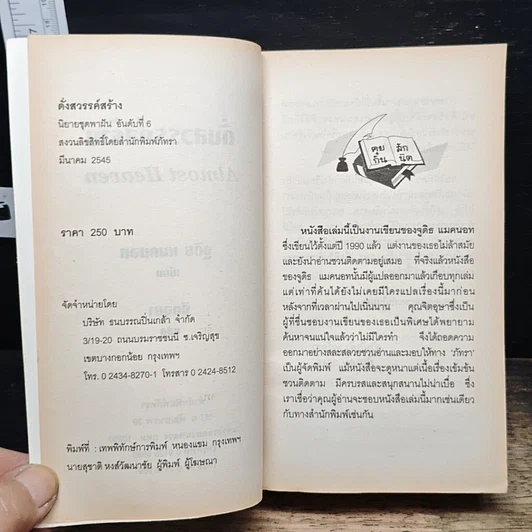 ดั่งสวรรค์สร้าง
นิยายชุดพาฝัน อันดับที่ 6
สงวนลิขสิทธิ์โดยสำนักพิมพ์ภัทรา
มีนาคม 2545
ราคา 250 บาท
จัดจำหน่ายโดย
บริษัท ธนบรรณปิ่นเกล้า จำกัด
3/19-20 ถนนบรมราชชนนี ซ.เจริญสุข
เขตบางกอกน้อย กรุงเทพฯ
โทร. 0 2434-8270-1 โทรสาร 0 2424-8512
พิมพ์ที่ : เทพพิทักษ์การพิมพ์ หนองแขม กรุงเทพฯ
นายสุชาติ หงส์วัฒนาชัย ผู้พิมพ์ ผู้โฆษณา
คุย กัน
สัก นิด
หนังสือเล่มนี้เป็นงานเขียนของจูดิธ แมคนอท
ซึ่งเขียนไว้ตั้งแต่ปี 1990 แล้ว แต่งานของเธอไม่ล้าสมัย
และยังน่าอ่านชวนติดตามอยู่เสมอ ที่จริงแล้วหนังสือ
ของจูดิธ แมคนอทนั้นมีผู้แปลออกมาแล้วเกือบทุกเล่ม
แต่เท่าที่ค้นได้ยังไม่เคยมีใครแปลเรื่องนี้มาก่อน
หลังจากที่เวลาผ่านไปเนิ่นนาน คุณจิตอุษาซึ่งเป็น
ผู้ที่ชื่นชอบงานเขียนของเธอเป็นพิเศษได้พยายาม
ค้นหาจนแน่ใจแล้วว่าไม่มีใครทำ จึงได้ถอดความ
ออกมาอย่างสละสลวยชวนอ่านและมอบให้ทาง 'ภัทรา'
เป็นผู้จัดพิมพ์ แม้หนังสือจะดูหนาแต่เนื้อเรื่องเข้มข้น
ชวนติดตาม มีครบรสและสนุกสนานไม่น่าเบื่อ ซึ่ง
เราเชื่อว่าคุณผู้อ่านจะชอบหนังสือเล่มนี้มากเช่นเดียว
กับทางสำนักพิมพ์เช่นกัน